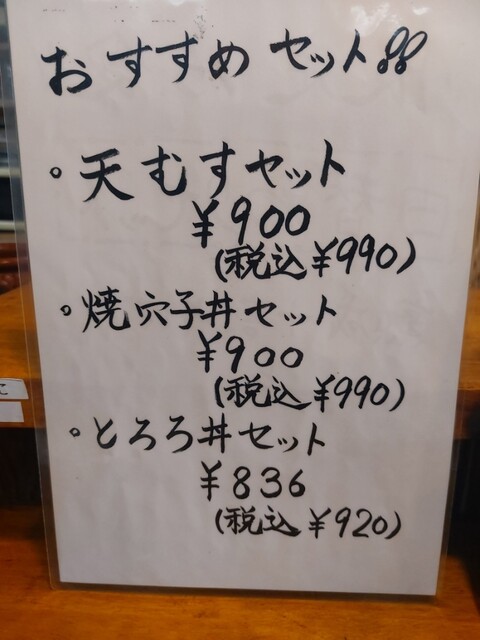 おすすめセット!!
。天むすセット
¥900
(税込¥990)
。焼穴子丼セット
¥900
(税込¥990)
。とろろ丼セット
¥836
(税込¥920)